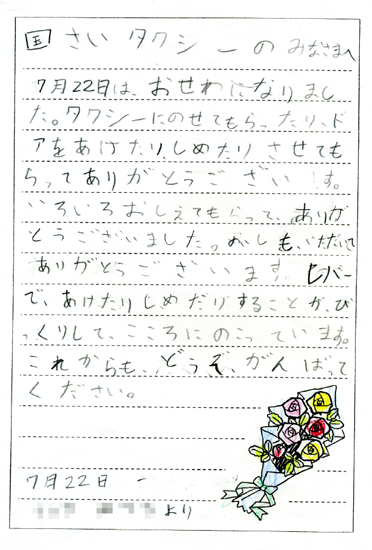 国さいタクシーのみなさまへ
7月22日は、おせわになりまし
た。タクシーにのせてもらったり、ド
アをあけたり、しめたりさせても
らってありがとうございます。
いろいろおしえてもらって、ありが
とうございました。めいしも、いただいて
ありがとうございます。レバー
で、あけたりしめたりすることが、び
っくりして、こころにのこっています。
これからも、どうぞ、がんばって
ください。
7月22日
より